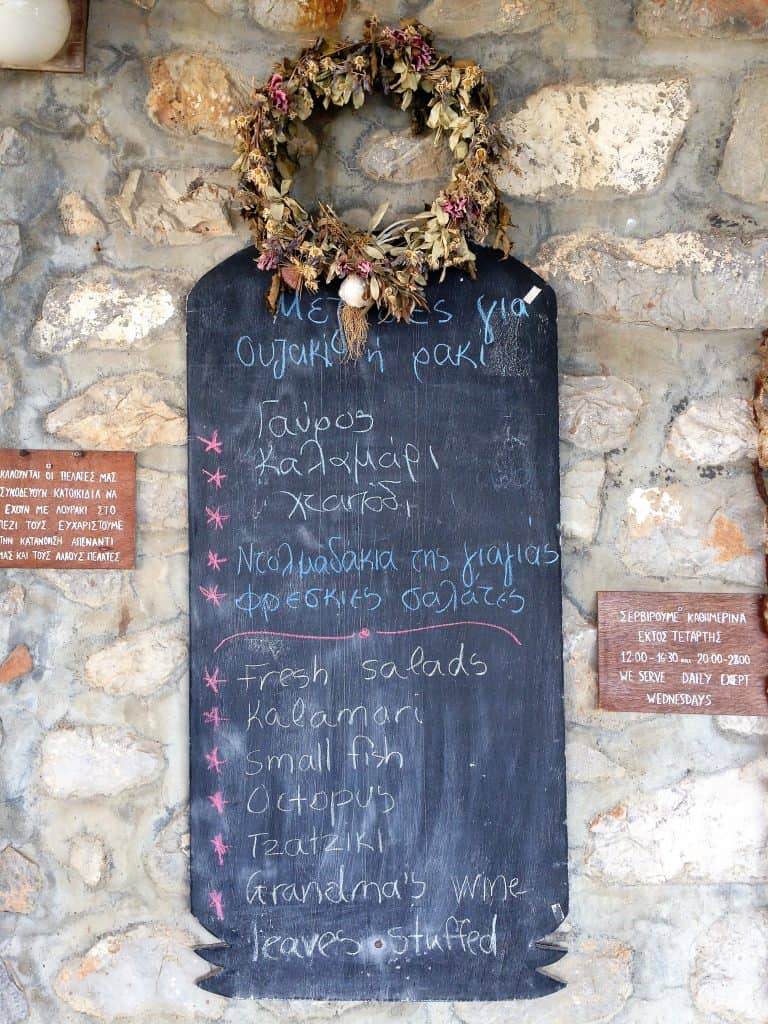 για
Ουζακι ή ρακι
Γαύρος
Καλαμάρι
χταπόδι
Ντολμαδάκια της γιαγιάς
φρεσκιες σαλάτες
Fresh salads
Kalamari
Small fish
Octopus
Tzatziki
Grandma's wine
leaves stuffed
ΚΑΛΟΥΝΤΑΙ ΟΙ ΠΕΛΑΤΕΣ ΜΑΣ
ΣΥΝΟΔΕΥΟΥΝ ΚΑΤΟΙΚΙΔΙΑ ΝΑ
ΕΧΟΥΝ ΜΕ ΛΟΥΡΑΚΙ ΣΤΟ
ΠΕΖΙ ΤΟΥΣ ΕΥΧΑΡΙΣΤΟΥΜΕ
ΤΗΝ ΚΑΤΑΝΟΗΣΗ ΑΠΕΝΑΝΤΙ
ΜΑΣ ΚΑΙ ΤΟΥΣ ΑΛΛΟΥΣ ΠΕΛΑΤΕΣ
ΣΕΡΒΙΡΟΥΜΕ ΚΑΘΗΜΕΡΙΝΑ
ΕΚΤΟΣ ΤΕΤΑΡΤΗΣ
12:00-16:30 και 20:00-23:00
WE SERVE DAILY EXEPT
WEDNESDAYS